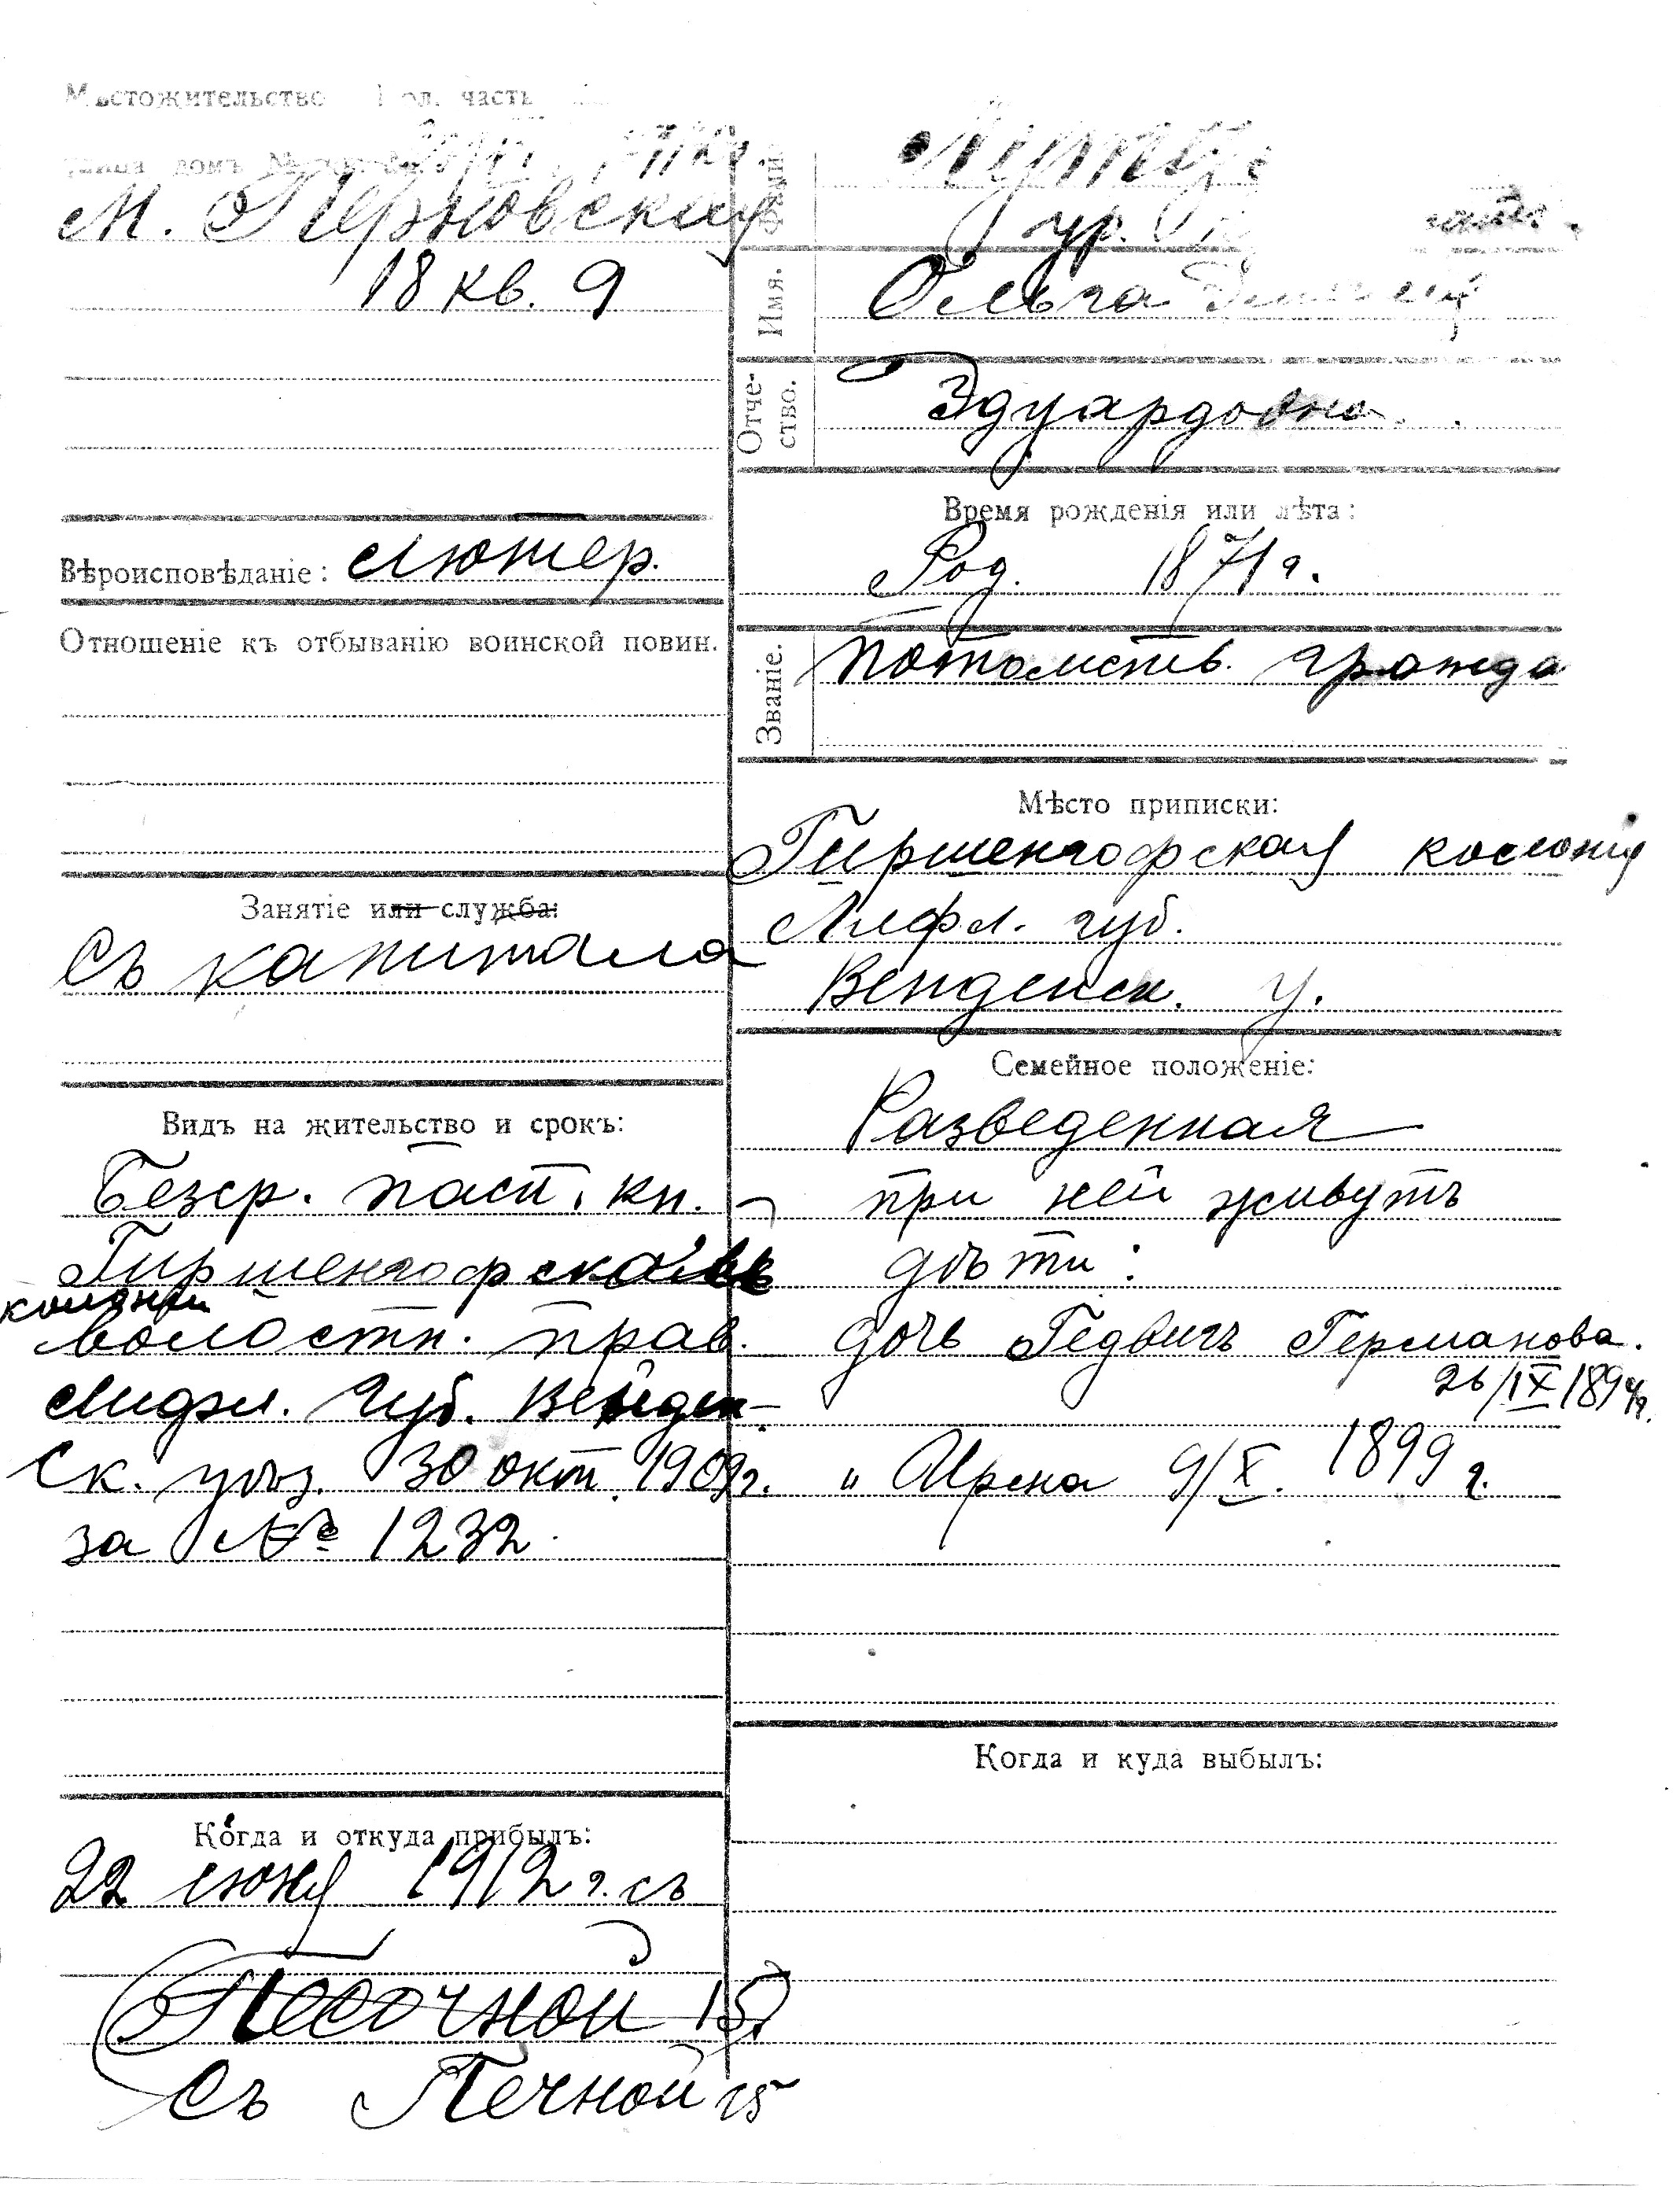 Мѣстожительство
часть
домъ №
М. Перновская
18 кв. 9
Вѣроисповѣданіе: Лютер.
Отношеніе къ отбыванію воинской повин.
Занятіе или служба:
Съ капитала
Видъ на жительство и срокъ:
Безср. пасп. кн.
Гиршенгофской
колоніи
волостн. прав.
Лифл. губ. Венден-
ск. уѣз. 30 окт. 1909 г.
за № 1232
Когда и откуда прибылъ:
22 іюня 1912 г. съ
Песочной 15
Съ Печной 15
ур.
Имя.
Ольга
Отче-
ство.
Эдуардовна
Время рожденія или лѣта:
Род. 1871 г.
Званіе.
Потомств. гражда
Мѣсто приписки:
Гиршенгофская колонія
Лифл. губ.
Венденск. у.
Семейное положеніе:
Разведенная
при ней живутъ
дѣти:
дочь Гедвигъ Германова.
26/IX 1894 г.
" Ирена 9/X. 1899 г.
Когда и куда выбылъ: